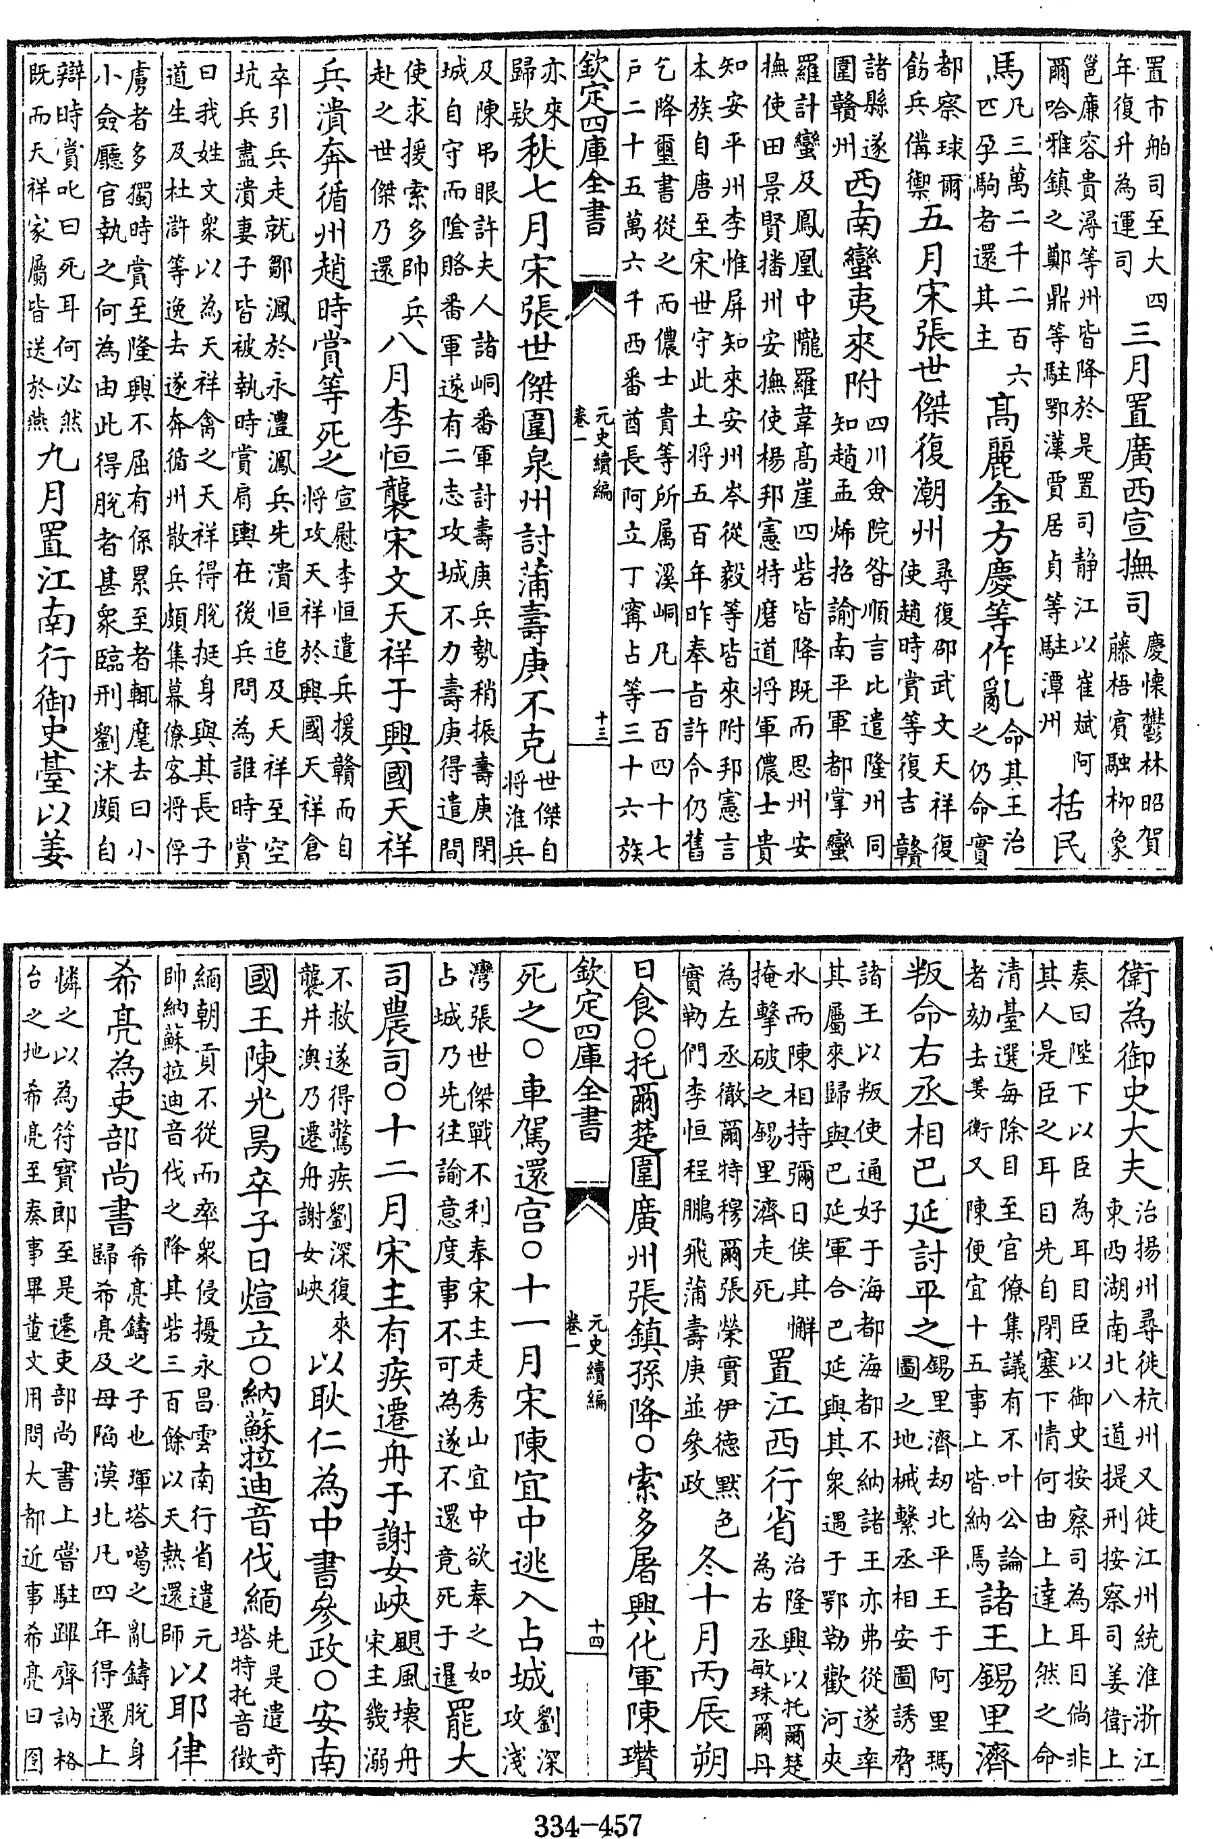 置市舶司至大四年復升為運司三月置廣西宣撫司慶懷鬱林昭賀藤梧賓融栁象
邕廉容貴潯等州皆降於是置司静江以崔斌阿爾哈雅鎮之鄭鼎等駐鄂漢賈居貞等駐潭州括民
馬凡三萬二千二百六匹孕駒者還其主髙麗金方慶等作亂命其王治之仍命實
都察球爾飭兵備禦五月宋張世傑復潮州尋復邵武文天祥復使趙時賞等復吉贛
諸縣遂圍贛州西南蠻夷來附四川僉院昝順言比遣隆州同知趙孟烯招諭南平軍都掌蠻
羅計蠻及鳳凰中隴羅韋髙崖四砦皆降既而思州安撫使田景賢播州安撫使楊邦憲特磨道将軍儂士貴
知安平州李惟屏知來安州岑從毅等皆來附邦憲言本族自唐至宋世守此土将五百年昨奉㫖許令仍舊
乞降璽書從之而儂士貴等所属溪峒凡一百四十七戸二十五萬六千西番酋長阿立丁甯占等三十六族
欽定四庫全書 元史續編 卷一 十三
亦來歸欵秋七月宋張世傑圍泉州討蒲壽庚不克世傑自将淮兵
及陳弔眼許夫人諸峒畨軍討壽庚兵勢稍振壽庚閉城自守而隂賂畨軍遂有二志攻城不力壽庚得遣間
使求援索多帥兵赴之世傑乃還八月李恒襲宋文天祥于興國天祥
兵潰奔循州趙時賞等死之宣慰李恒遣兵援贛而自将攻天祥於興國天祥倉
卒引兵走就鄒㵯於永灃㵯兵先潰恒追及天祥至空坑兵盡潰妻子皆被執時賞肩輿在後兵問為誰時賞
曰我姓文衆以為天祥禽之天祥得脱挺身與其長子道生及杜滸等逸去遂奔循州散兵頗集幕僚客将俘
虜者多獨時賞至隆興不屈有係累至者輙麾去曰小小僉廳官執之何為由此得脱者甚衆臨刑劉洙頗自
辯時賞叱曰死耳何必然既而天祥家屬皆送於燕九月置江南行御史臺以姜
衛為御史大夫治揚州尋徙杭州又徙江州統淮浙江東西湖南北八道提刑按察司姜衛上
奏曰陛下以臣為耳目臣以御史按察司為耳目倘非其人是臣之耳目先自閉塞下情何由上達上然之命
清臺選每除目至官僚集議有不叶公論者劾去姜衛又陳便宜十五事上皆納焉諸王錫里濟
叛命右丞相巴延討平之錫里濟刼北平王于阿里瑪圖之地械繫丞相安圖誘脅
諸王以叛使通好于海都海都不納諸王亦弗從遂率其屬來歸與巴延軍合巴延與其衆遇于鄂勒歡河夾
水而陳相持彌日俟其懈掩擊破之錫里濟走死置江西行省治隆興以托爾楚為右丞敏珠爾丹
為左丞徹爾特穆爾張榮實伊德黙色實勒們李恒程鵬飛蒲壽庚並參政冬十月丙辰朔
日食○托爾楚圍廣州張鎮孫降○索多屠興化軍陳瓚
欽定四庫全書 元史續編 卷一 十四
死之○車駕還宫○十一月宋陳宜中逃入占城劉深攻淺
灣張世傑戰不利奉宋主走秀山宜中欲奉之如占城乃先往諭意度事不可為遂不還竟死于暹罷大
司農司○十二月宋主有疾遷舟于謝女峽颶風壞舟宋主幾溺
不救遂得驚疾劉深復來襲井澳乃遷舟謝女峽以耿仁為中書參政○安南
國王陳光昺卒子日烜立○納蘇拉迪音伐緬先是遣竒塔特托音徴
緬朝貢不從而率衆侵擾永昌雲南行省遣元帥納蘇拉迪音伐之降其砦三百餘以天熱還師以耶律
希亮為吏部尚書希亮鑄之子也琿塔噶之亂鑄脱身歸希亮及母陷漠北凡四年得還上
憐之以為符寳郎至是遷吏部尚書上嘗駐蹕齊訥格台之地希亮至奏事畢董文用問大都近事希亮曰囹
334-457